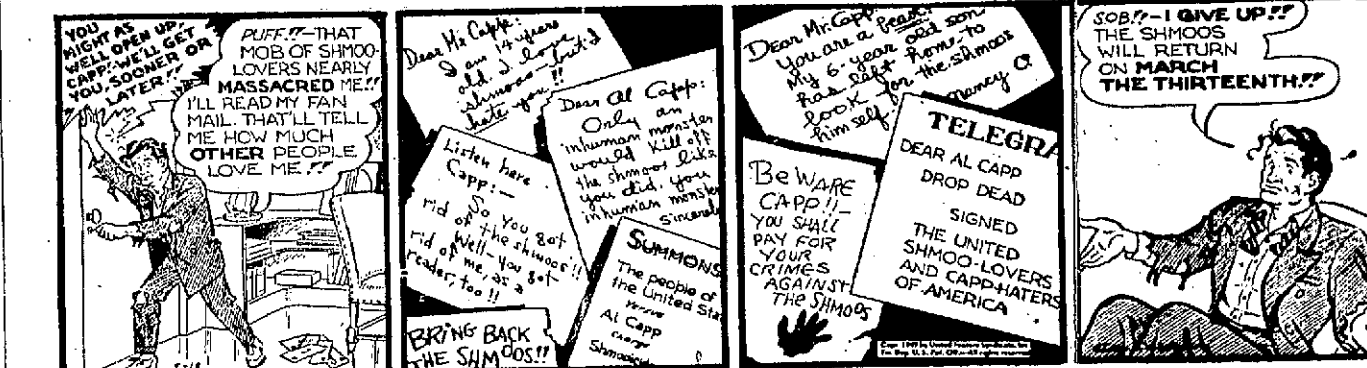 YOU
MIGHT AS
WELL OPEN UP,
CAPP!-WE'LL GET
YOU, SOONER OR
LATER!!
PUFF!!-THAT
MOB OF SHMOO-
LOVERS NEARLY
MASSACRED ME!!
I'LL READ MY FAN
MAIL. THAT'LL TELL
ME HOW MUCH
OTHER PEOPLE
LOVE ME!!
Dear Mr. Capp:
I am 14 years
old. I love
shmoos-but I
hate you!!
Dear Al Capp:
Only an
inhuman monster
would kill off
the shmoos like
you did, you
inhuman monster
Sincerely
Listen here
Capp:-
So you got
rid of the shmoos!!
Well-you got
rid of me, as a
reader, too!!
SUMMONS
The people of
the United Sta
versus
Al Capp
charge
Shmooicid
BRING BACK
THE SHMOOS!!
Dear Mr. Capp
You are a beast.
My 6-year old son
has left home-to
look for the shmoos
himself.
Nancy O.
TELEGRA
DEAR AL CAPP
DROP DEAD
SIGNED
THE UNITED
SHMOO-LOVERS
AND CAPP-HATERS
OF AMERICA
BEWARE
CAPP!!-
YOU SHALL
PAY FOR
YOUR
CRIMES
AGAINST
THE SHMOOS
Copr. 1949 by United Feature Syndicate, Inc.
Tm. Reg. U. S. Pat. Off.-All rights reserved
SOB!!-I GIVE UP!!
THE SHMOOS
WILL RETURN
ON MARCH
THE THIRTEENTH!!